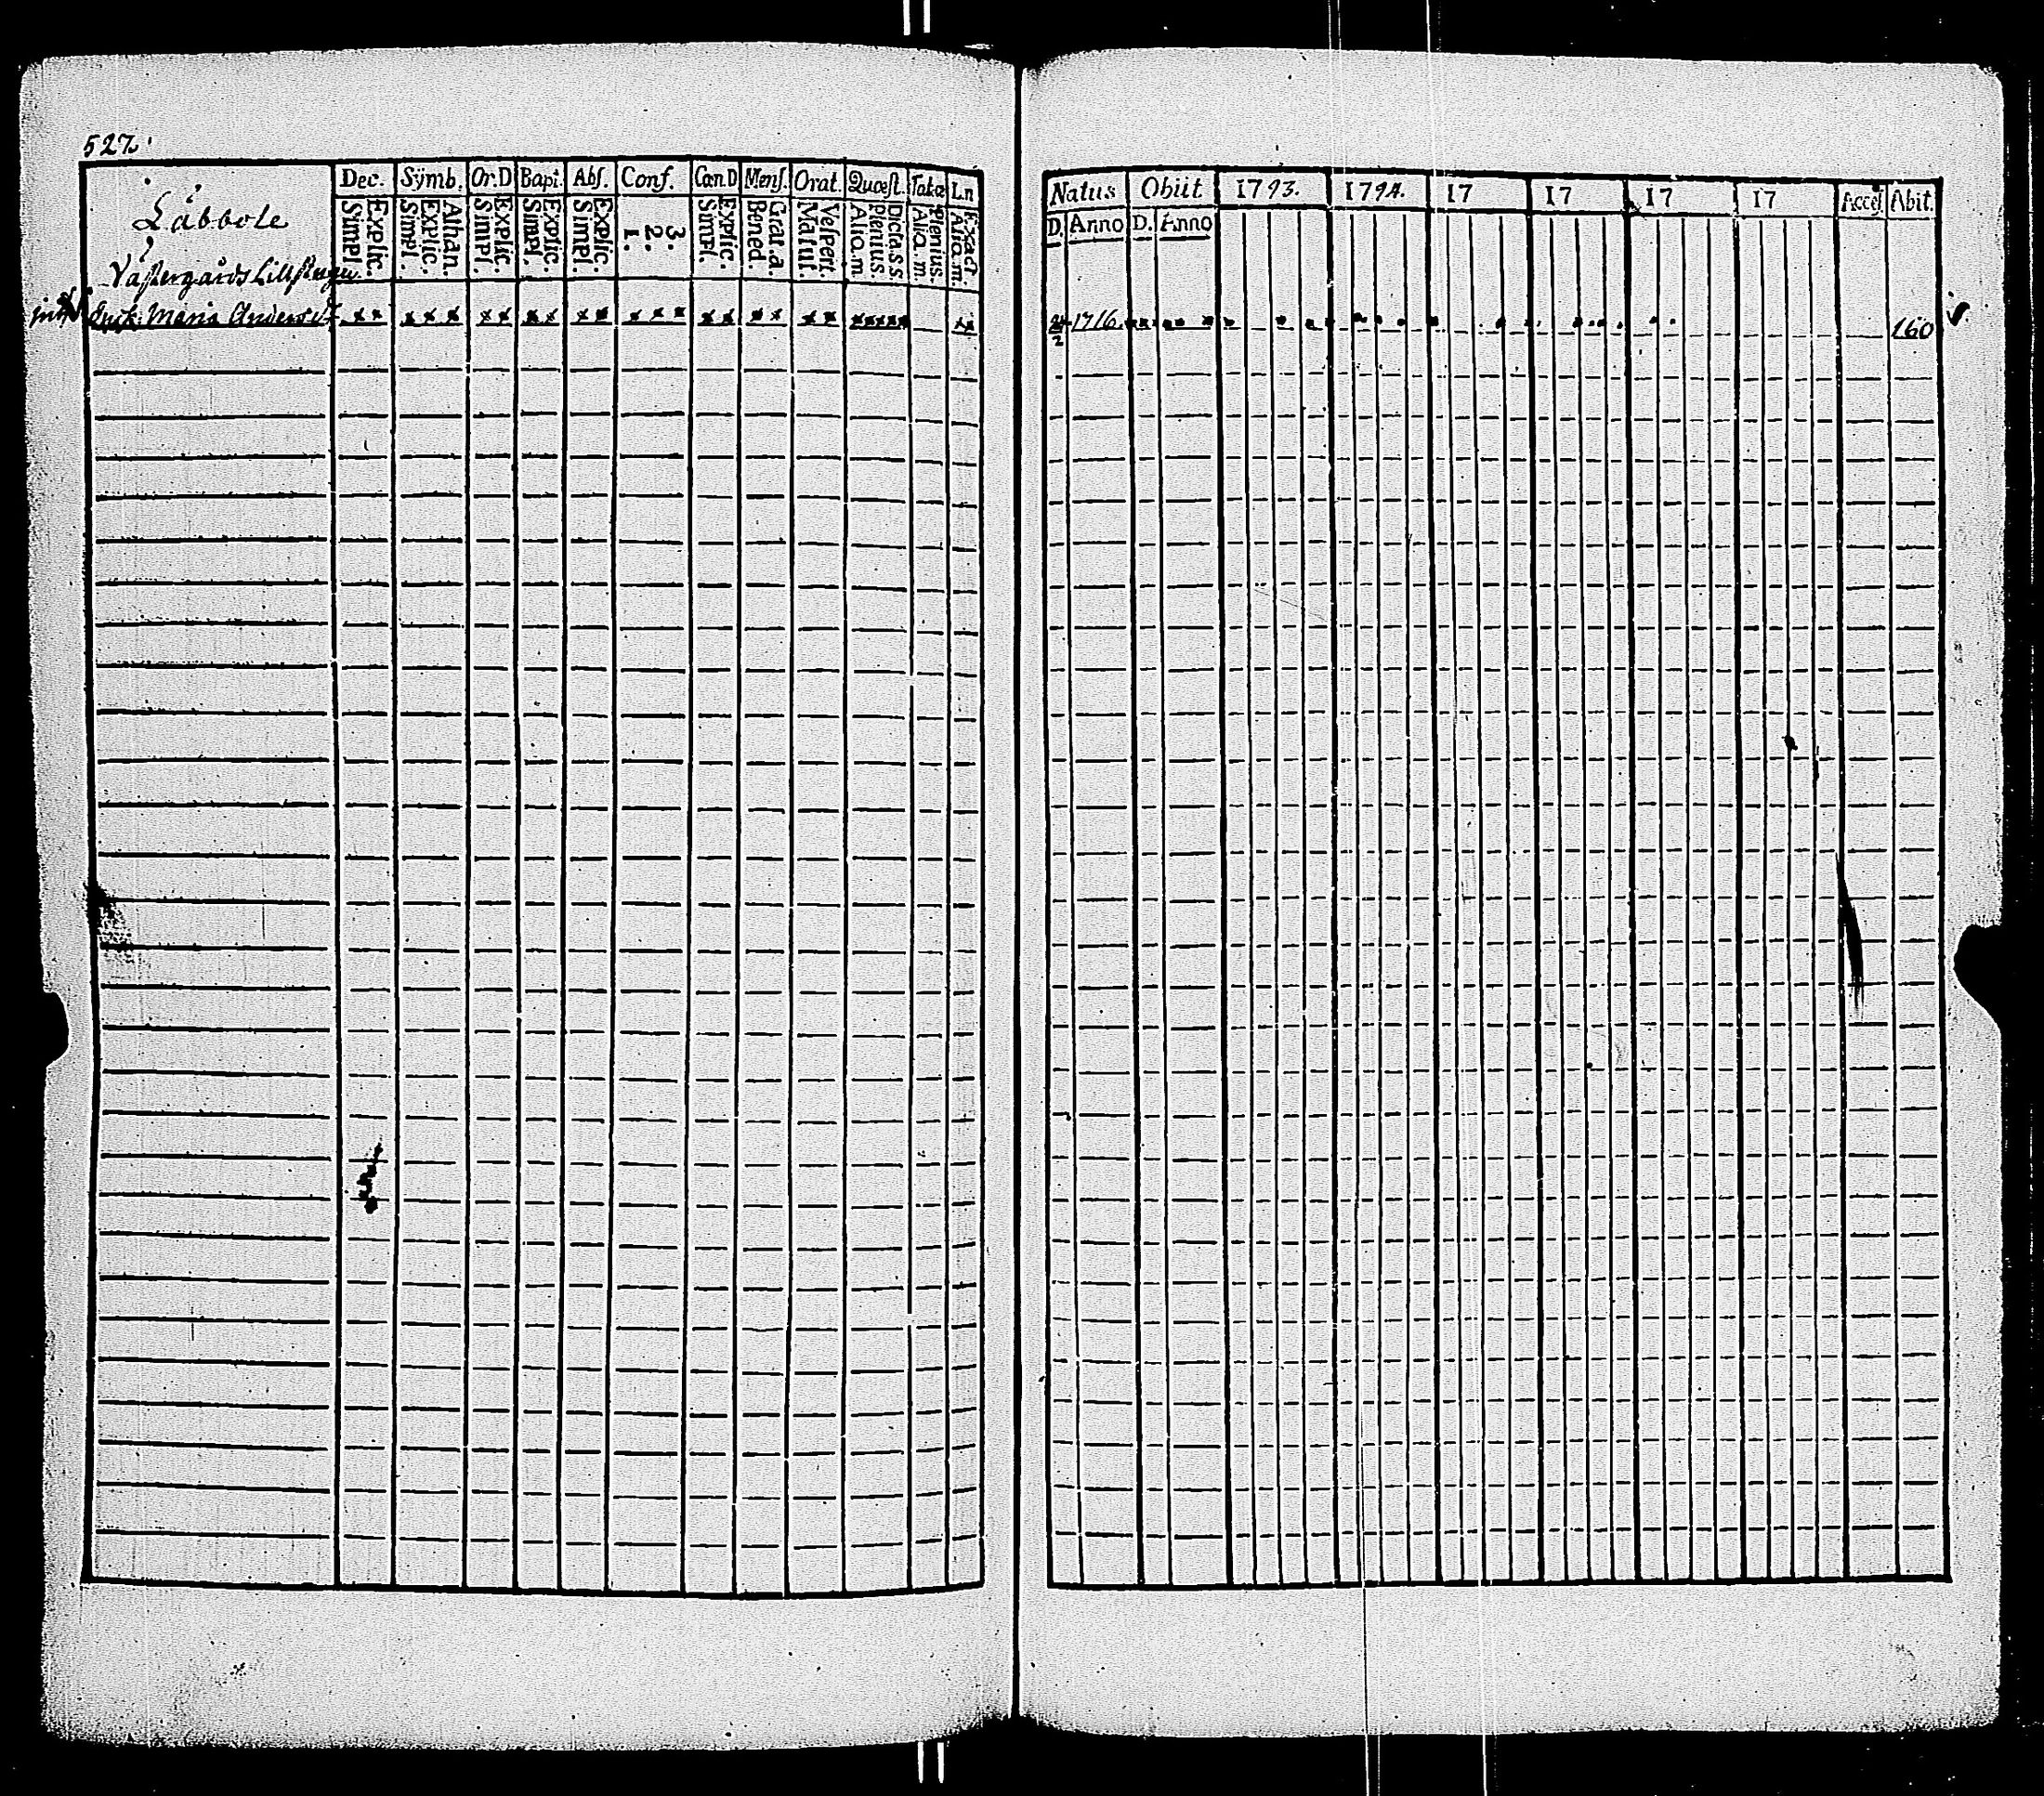 527.
Låbbole
Västergårds Lillstugu
Dec. Symb. Or.D Bapt. Abs. Conf. Cœn.D Mens. Orat. Quæst. Tabæ Ln
Simpl. Explic. Simpl. Explic. Athan. Simpl. Explic. Simpl. Explic. Simpl. Explic. 1. 2. 3. Simpl. Explic. Bened. Grat.a Matut. Vespert. Alia.m. Plenius Dicta.s.s Alia.m. Plenius. Alia.m. Exact
Enk. Maria Andersd.r x x x x x x x x x x x x x x x x x x x x x x x x x x x
Natus Obiit 1793. 1794. 17 17 17 17 Acceſ Abit.
D. Anno D. Anno
1716. 160
2